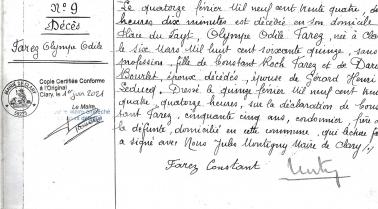 N° 9
Décès
Farez Olympe Odile
Copie Certifiée Conforme
à l'Original
Clary, le 1er juin 2021
Le Maire,
Le quatorze février mil neuf cent trente quatre, dix
heures dix minutes est décédée en son domicile
Place du Fayt, Olympe Odile Farez, née à Clary
le six Mars mil huit cent soixante quinze, sans
profession, fille de Constant Roch Farez et de
Bourlet, époux décédés, épouse de Gérard Henri
Leducq. Dressé le quinze février mil neuf cent trente
quatre, quatorze heures, sur la déclaration de Cons
tant Farez, cinquante cinq ans, cordonnier, frère de
la défunte, domicilié en cette commune, qui lecture faite
a signé avec Nous Jules Montigny Maire de Clary.
Farez Constant